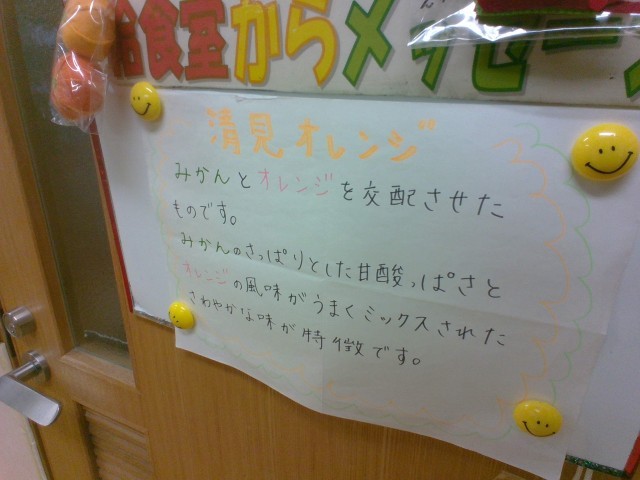 給食室からメッセージ
清見オレンジ
みかんとオレンジを交配させた
ものです。
みかんのさっぱりとした甘酸っぱさと
オレンジの風味がうまくミックスされた
さわやかな味が特徴です。